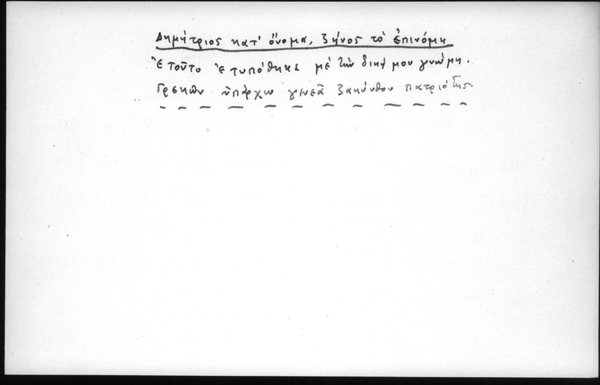 Δημήτριος κατ' όνομα, Ζήνος τὸ ἐπινόμι
Ἐτοῦτο ἐτυπόθηκε μέ τὴν δικη μου γνώμη.
Γρεκῶν ὑπάρχω γενεᾶ Ζακύνθου πατριότης